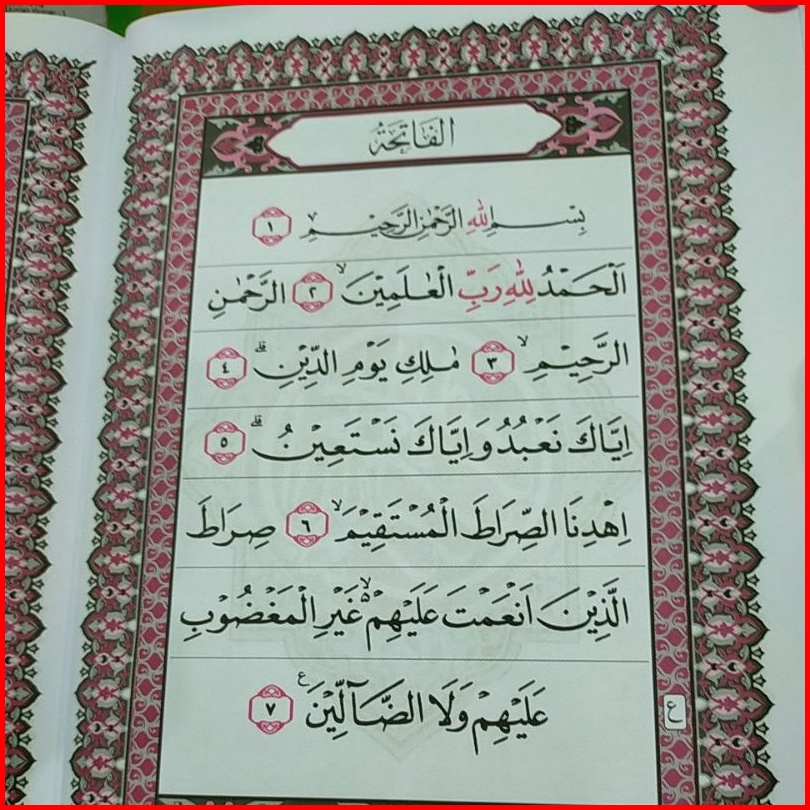 الفَاتِحَةُ
بِسْمِ اللهِ الرَّحْمٰنِ الرَّحِيْمِ ۝١
اَلْحَمْدُ لِلّٰهِ رَبِّ الْعٰلَمِيْنَۙ ۝٢ الرَّحْمٰنِ
الرَّحِيْمِۙ ۝٣ مٰلِكِ يَوْمِ الدِّيْنِۗ ۝٤
اِيَّاكَ نَعْبُدُ وَاِيَّاكَ نَسْتَعِيْنُۗ ۝٥
اِهْدِنَا الصِّرَاطَ الْمُسْتَقِيْمَۙ ۝٦ صِرَاطَ
الَّذِيْنَ اَنْعَمْتَ عَلَيْهِمْ ەۙ غَيْرِ الْمَغْضُوْبِ
عَلَيْهِمْ وَلَا الضَّاۤلِّيْنَ ࣖ ۝٧
ع